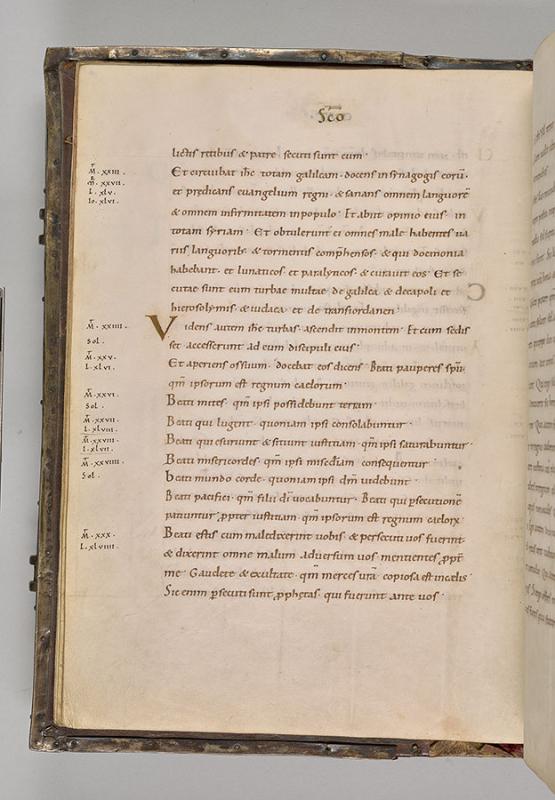 Sc̄o
lictis retibus & patre · secuti sunt eum ·
Et circuibat ih̄c totam galileam · docens in synagogis eorū ·
et predicans euangelium regni · & sanans omnem languorē
& omnem infirmitatem in populo · Et abiit opinio eius · in
totam syriam · Et obtulerunt ei omnes male habentes ua
riis languorib; & tormentis comp̄hensos · & qui doemonia
habebant · et lunaticos et paralyticos · & curauit eos · Et se
cutae sunt eum turbae multae de galilea & decapoli et
hierosolymis · & iudaea · et de transiordanen
Videns autem ih̄s turbas · ascendit in montem · Et cum sedis
set accesserunt ad eum discipuli eius ·
Et aperiens os suum · docebat eos dicens · Beati pauperes sp̄u ·
qm̄ ipsorum est regnum caelorum ·
Beati mites · qm̄ ipsi possidebunt terram ·
Beati qui lugent · quoniam ipsi consolabuntur ·
Beati qui esuriunt & sitiunt iustitiam · qm̄ ipsi saturabuntur ·
Beati misericordes · qm̄ ipsi misediam consequentur ·
beati mundo corde · quoniam ipsi dm̄ uidebunt ·
Beati pacifici · qm̄ filii dī uocabuntur · Beati qui psecutionē
patiuntur ꝓpter iustitiam · qm̄ ipsorum est regnum caeloꝝ ·
Beati estis cum maledixerint uobis · & persecuti uos fuerint ·
& dixerint omne malum aduersum uos mentientes ꝓpt̄
me · Gaudete & exultate · qm̄ merces ur̄a copiosa est in caelis
Sic enim psecuti sunt ꝓphetas · qui fuerunt ante uos ·
M̄ · XXIII ·
m̄ · XXVII ·
L · XLV ·
Io · XLVI ·
M̄ · XXIIII ·
Sol ·
M̄ · XXV ·
L · XLVI ·
M̄ · XXVI ·
Sol ·
M̄ · XXVII ·
L · XLVIII ·
M̄ · XXVIII ·
L · XLVII ·
M̄ · XXVIIII ·
Sol ·
M̄ · XXX ·
L · XLVIIII ·